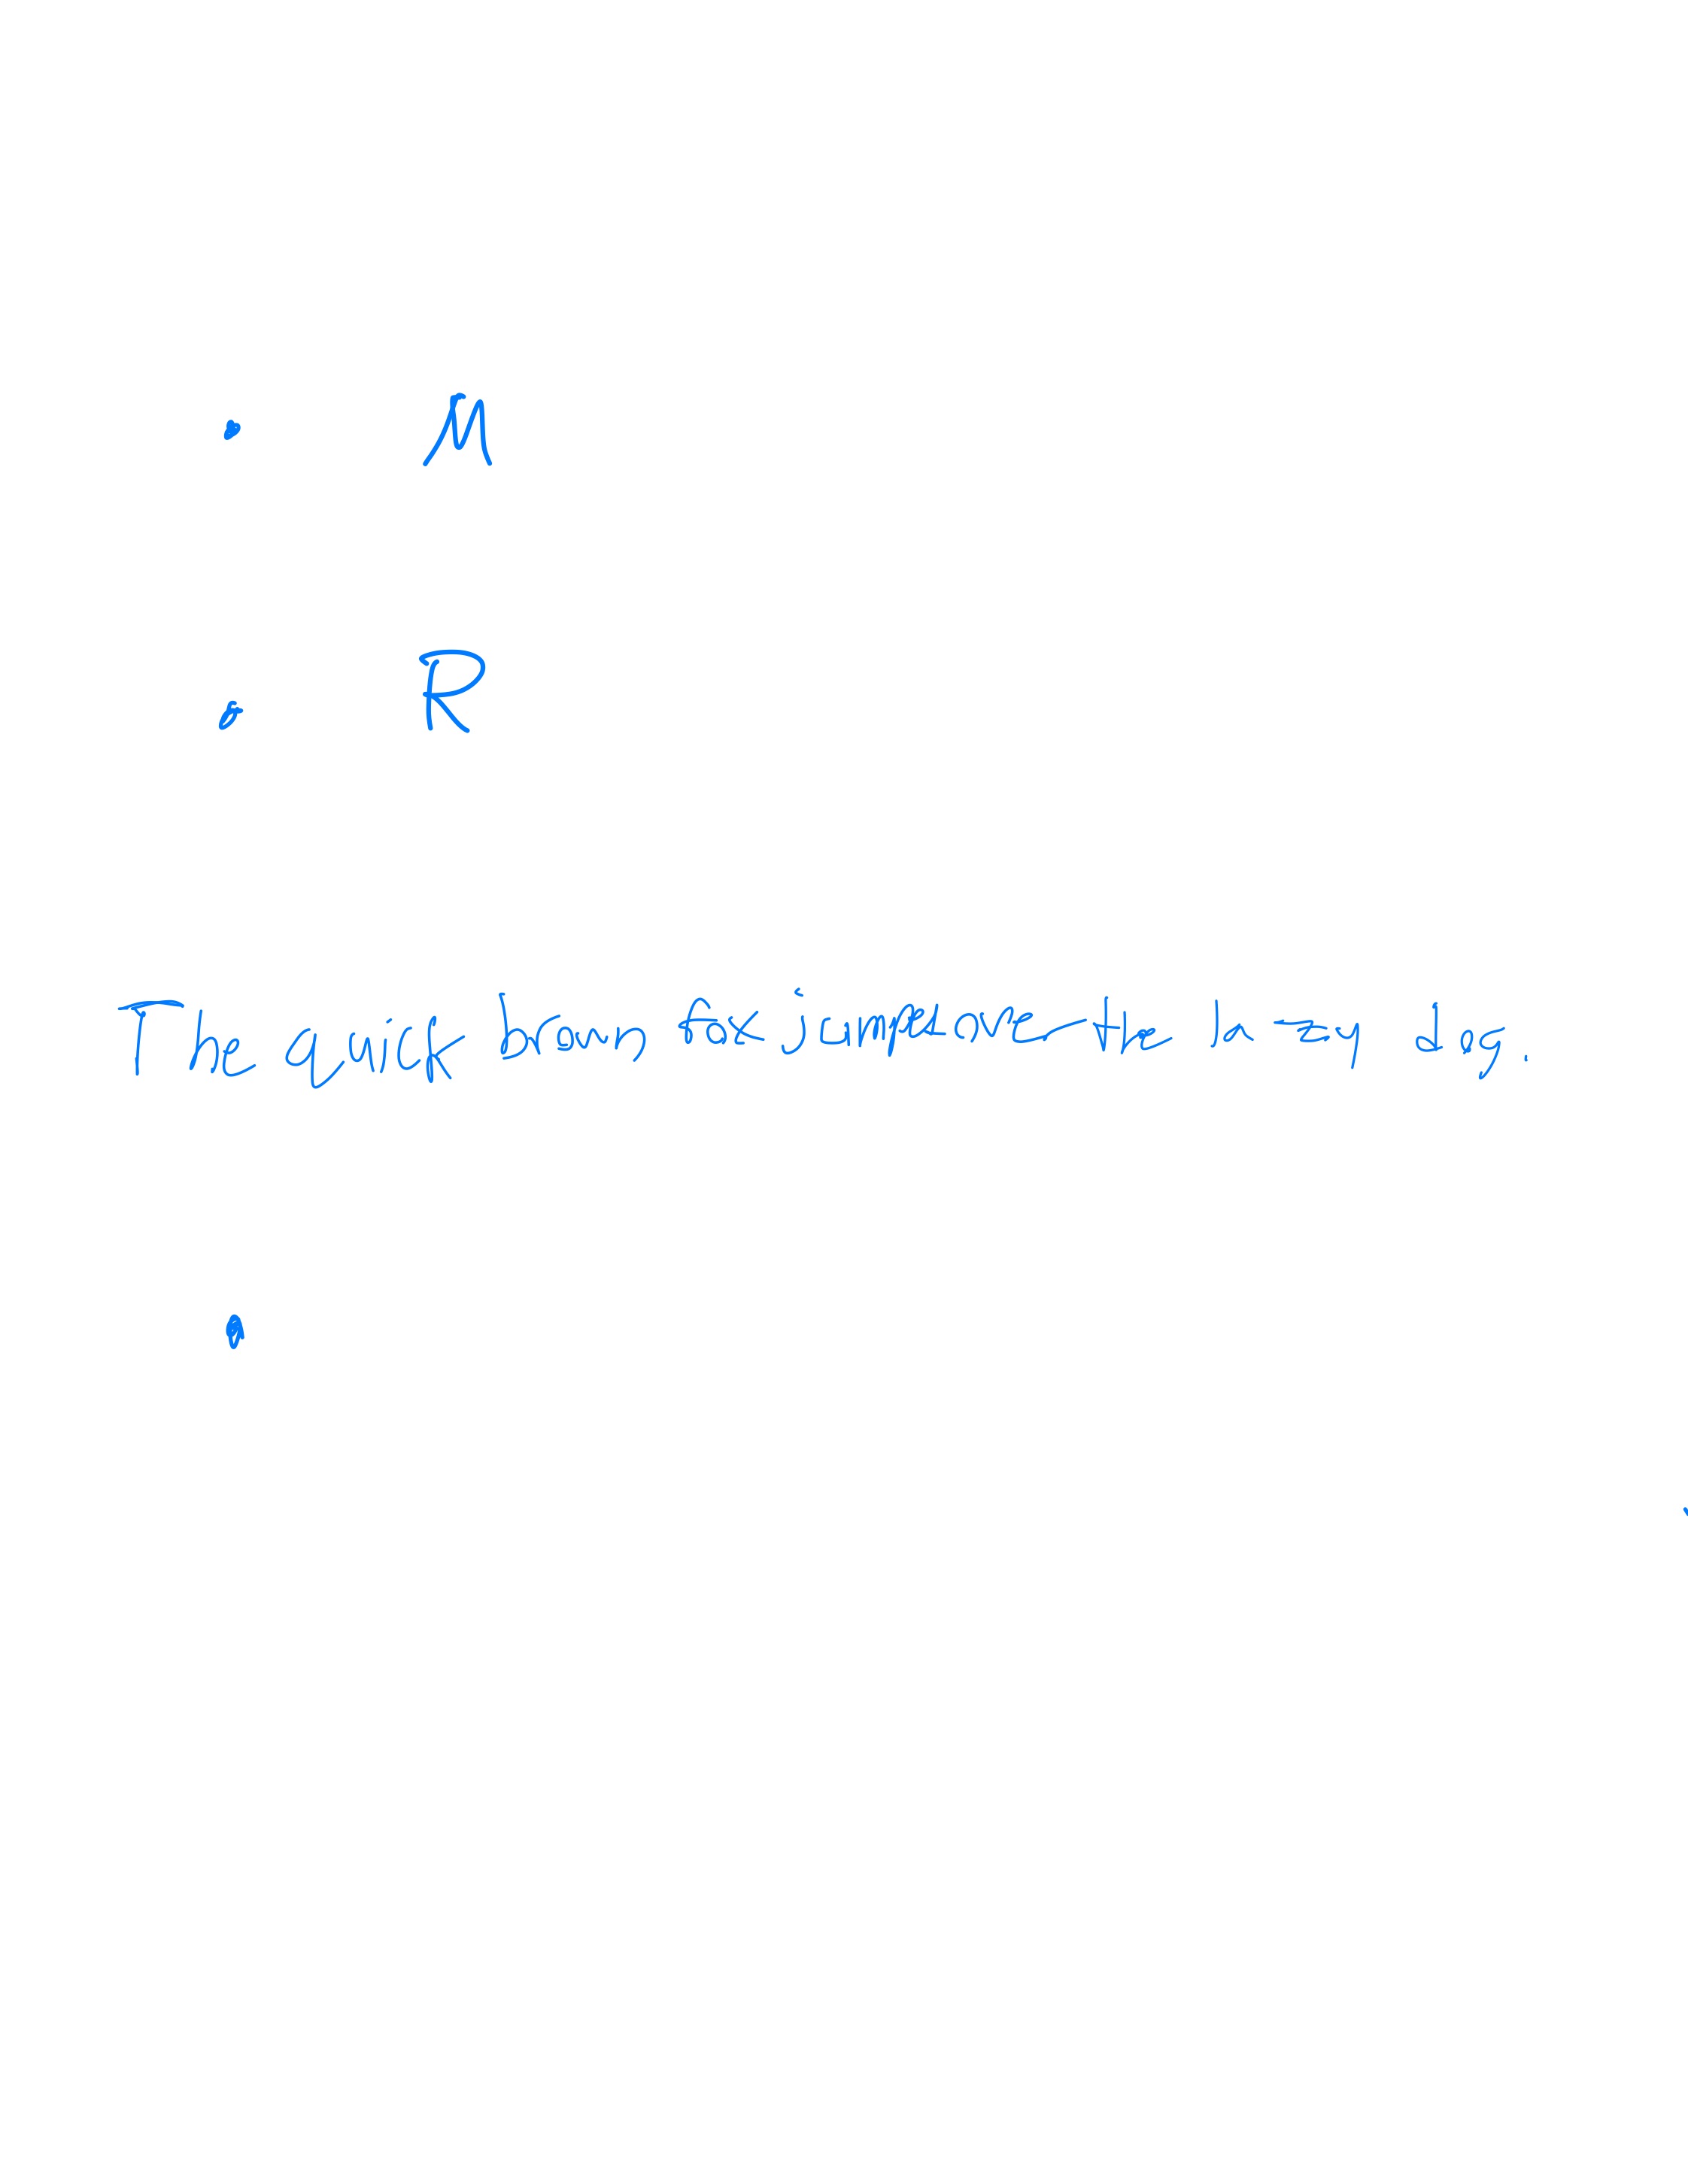 • M
• R
The quick brown fox jumped over the lazy dog.
•